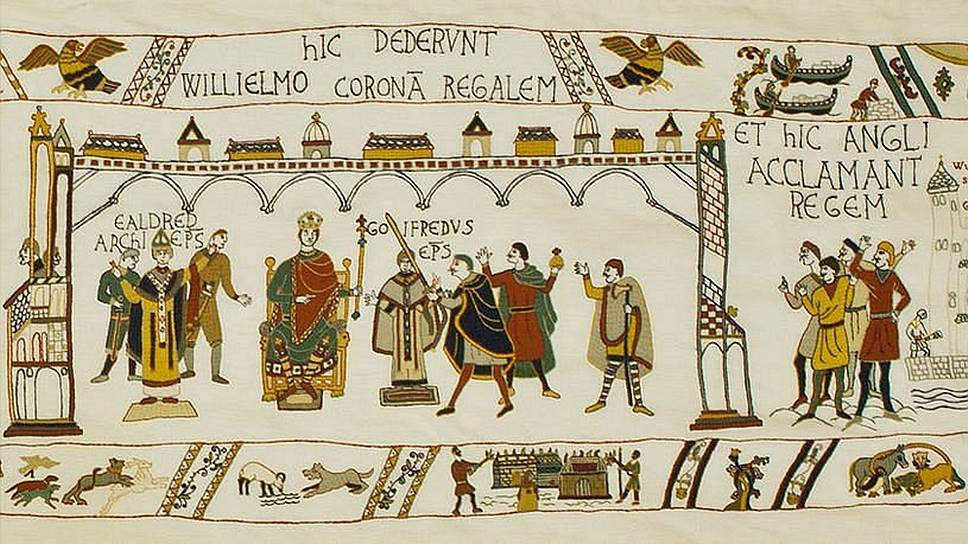 hIC DEDERVNT
WILLIELMO CORONĀ REGALEM
EALDRED
ARChIEP̄S
GOIFREDVS
EP̄S
ET hIC ANGLI
ACCLAMANT
REGEM